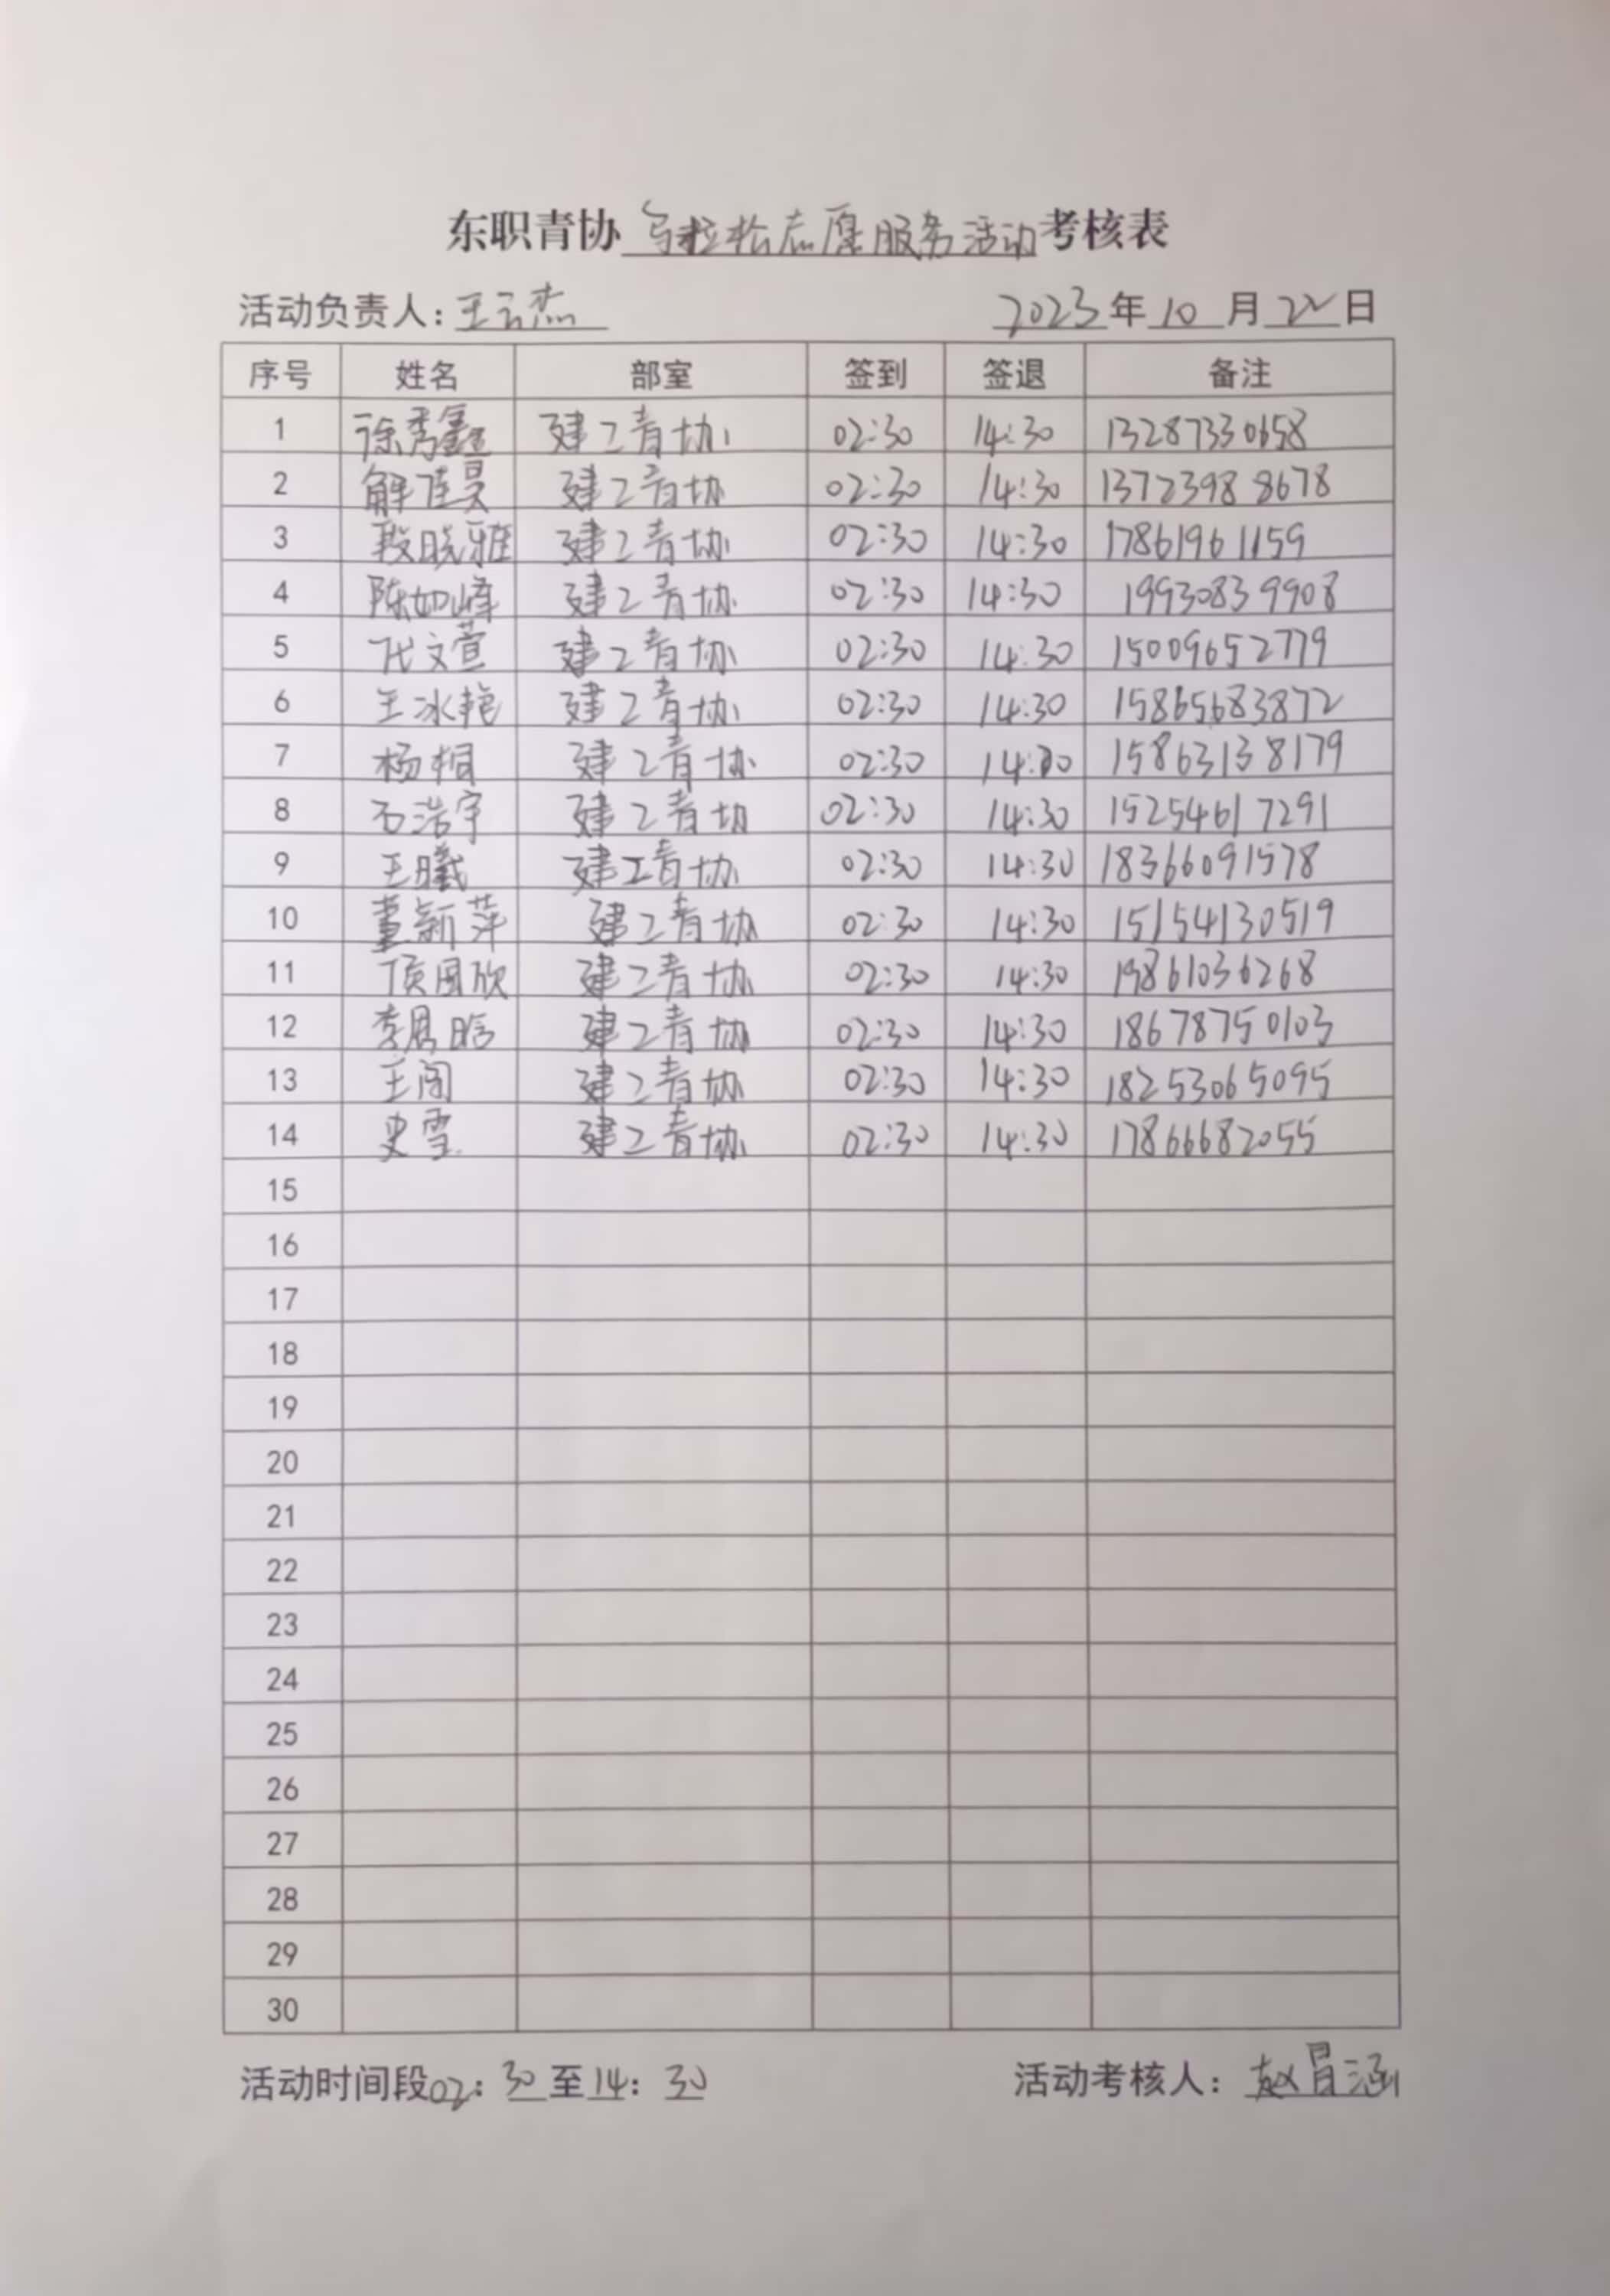 东职青协马拉松志愿服务活动考核表
活动负责人：王云杰 2023年10月22日
序号 姓名 部室 签到 签退 备注
1 徐秀鑫 建工青协 02:30 14:30 13287330658
2 解佳昊 建工青协 02:30 14:30 13723988678
3 段晓雅 建工青协 02:30 14:30 17861961159
4 陈如峰 建工青协 02:30 14:30 19930839908
5 代文萱 建工青协 02:30 14:30 15009652779
6 王冰艳 建工青协 02:30 14:30 15865683872
7 杨桐 建工青协 02:30 14:30 15863138179
8 石浩宇 建工青协 02:30 14:30 15254617291
9 王曦 建工青协 02:30 14:30 18366091578
10 董新萍 建工青协 02:30 14:30 15154130519
11 建工青协 02:30 14:30 19861036268
12 李君晗 建工青协 02:30 14:30 18678750103
13 建工青协 02:30 14:30 18253065095
14 史雪 建工青协 02:30 14:30 17866682055
15
16
17
18
19
20
21
22
23
24
25
26
27
28
29
30
活动时间段02：30至14：30 活动考核人：赵冒涵